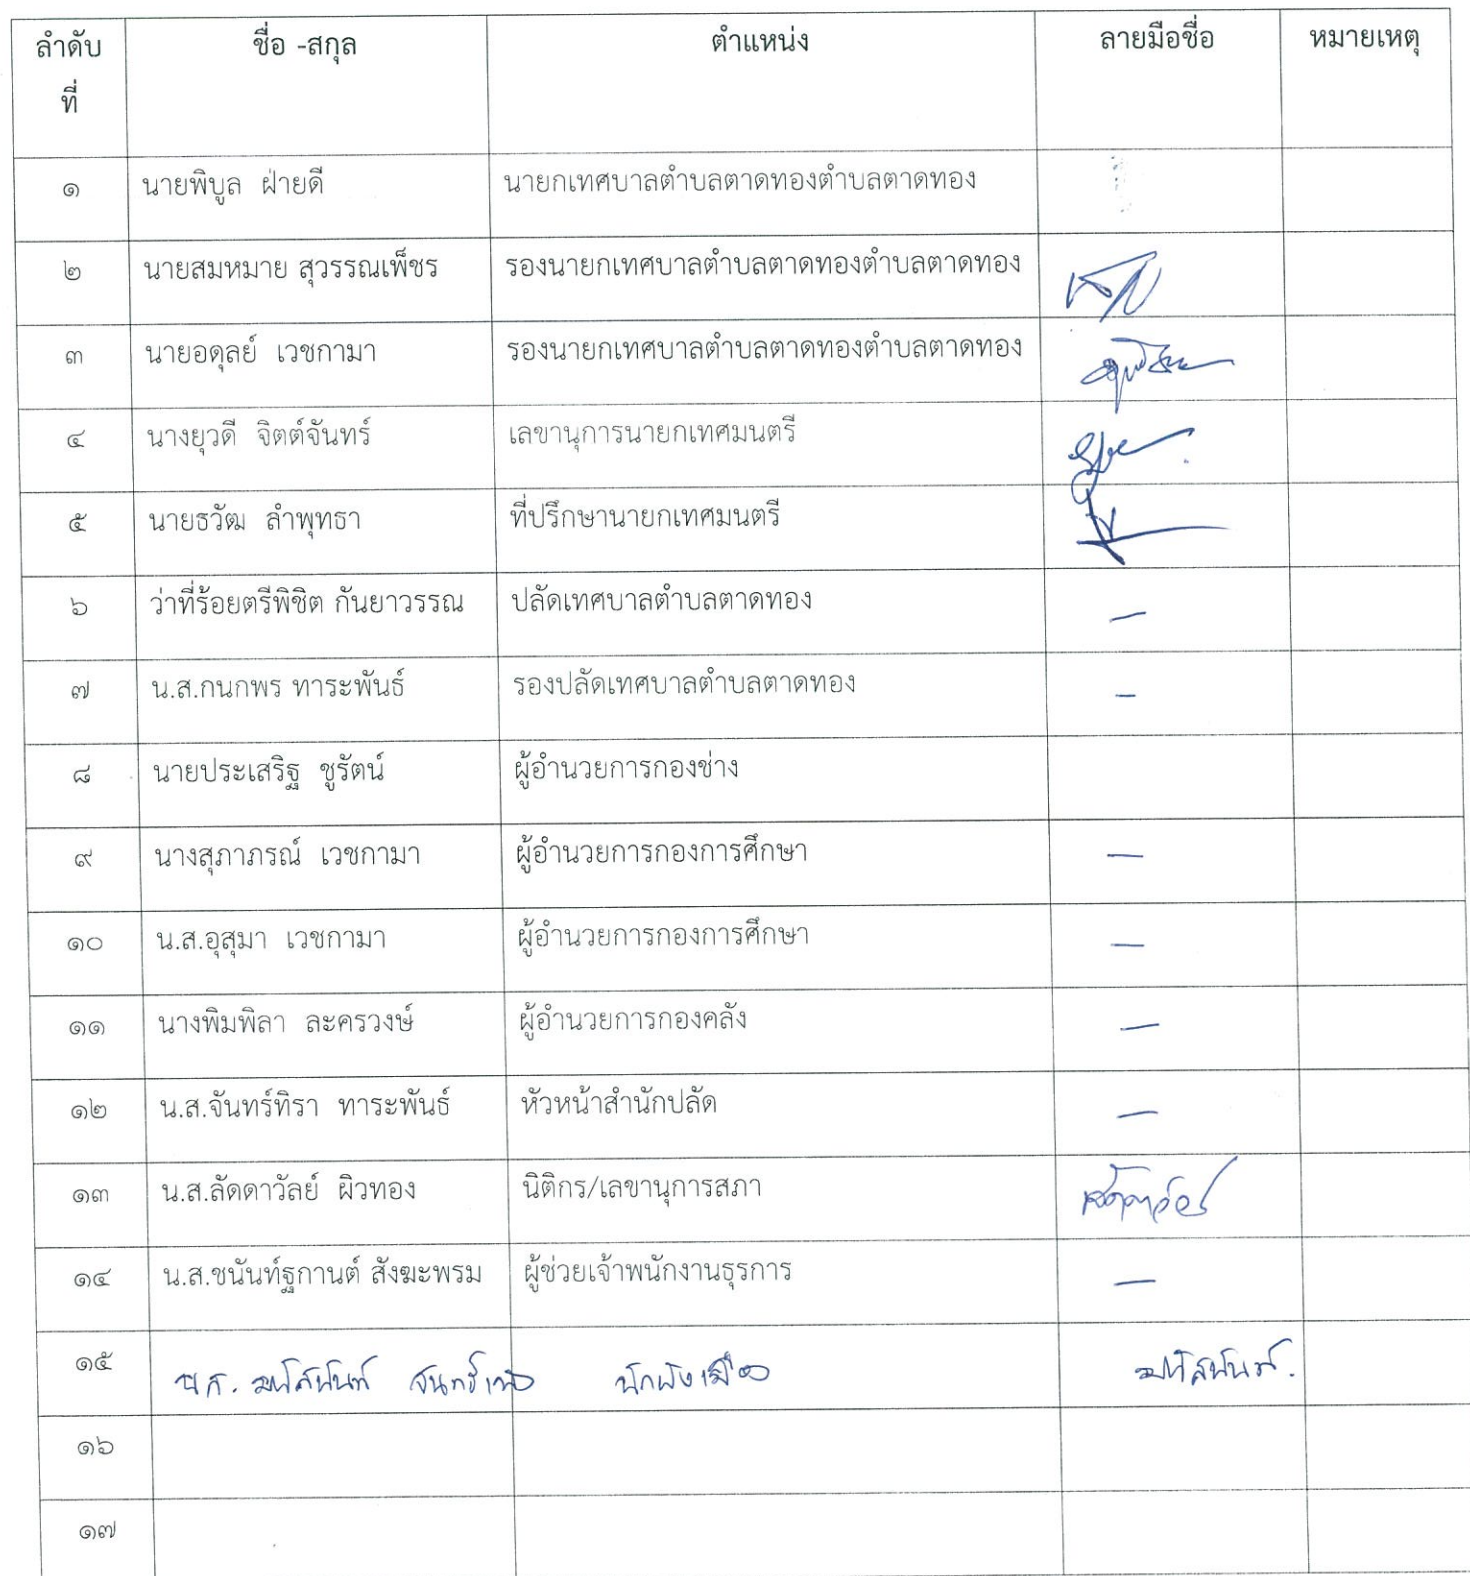 ลำดับที่ ชื่อ -สกุล ตำแหน่ง ลายมือชื่อ หมายเหตุ
๑ นายพิบูล ฝ่ายดี นายกเทศบาลตำบลตาดทองตำบลตาดทอง
๒ นายสมหมาย สุวรรณเพ็ชร รองนายกเทศบาลตำบลตาดทองตำบลตาดทอง
๓ นายอดุลย์ เวชกามา รองนายกเทศบาลตำบลตาดทองตำบลตาดทอง
๔ นางยุวดี จิตต์จันทร์ เลขานุการนายกเทศมนตรี
๕ นายธวัฒ ลำพุทธา ที่ปรึกษานายกเทศมนตรี
๖ ว่าที่ร้อยตรีพิชิต กันยาวรรณ ปลัดเทศบาลตำบลตาดทอง —
๗ น.ส.กนกพร ทาระพันธ์ รองปลัดเทศบาลตำบลตาดทอง –
๘ นายประเสริฐ ชูรัตน์ ผู้อำนวยการกองช่าง
๙ นางสุภาภรณ์ เวชกามา ผู้อำนวยการกองการศึกษา —
๑๐ น.ส.อุสุมา เวชกามา ผู้อำนวยการกองการศึกษา —
๑๑ นางพิมพิลา ละครวงษ์ ผู้อำนวยการกองคลัง —
๑๒ น.ส.จันทร์ทิรา ทาระพันธ์ หัวหน้าสำนักปลัด —
๑๓ น.ส.ลัดดาวัลย์ ผิวทอง นิติกร/เลขานุการสภา ลัดดาวัลย์
๑๔ น.ส.ชนันท์ฐกานต์ สังฆะพรม ผู้ช่วยเจ้าพนักงานธุรการ —
๑๕ น.ส. นักผังเมือง
๑๖
๑๗